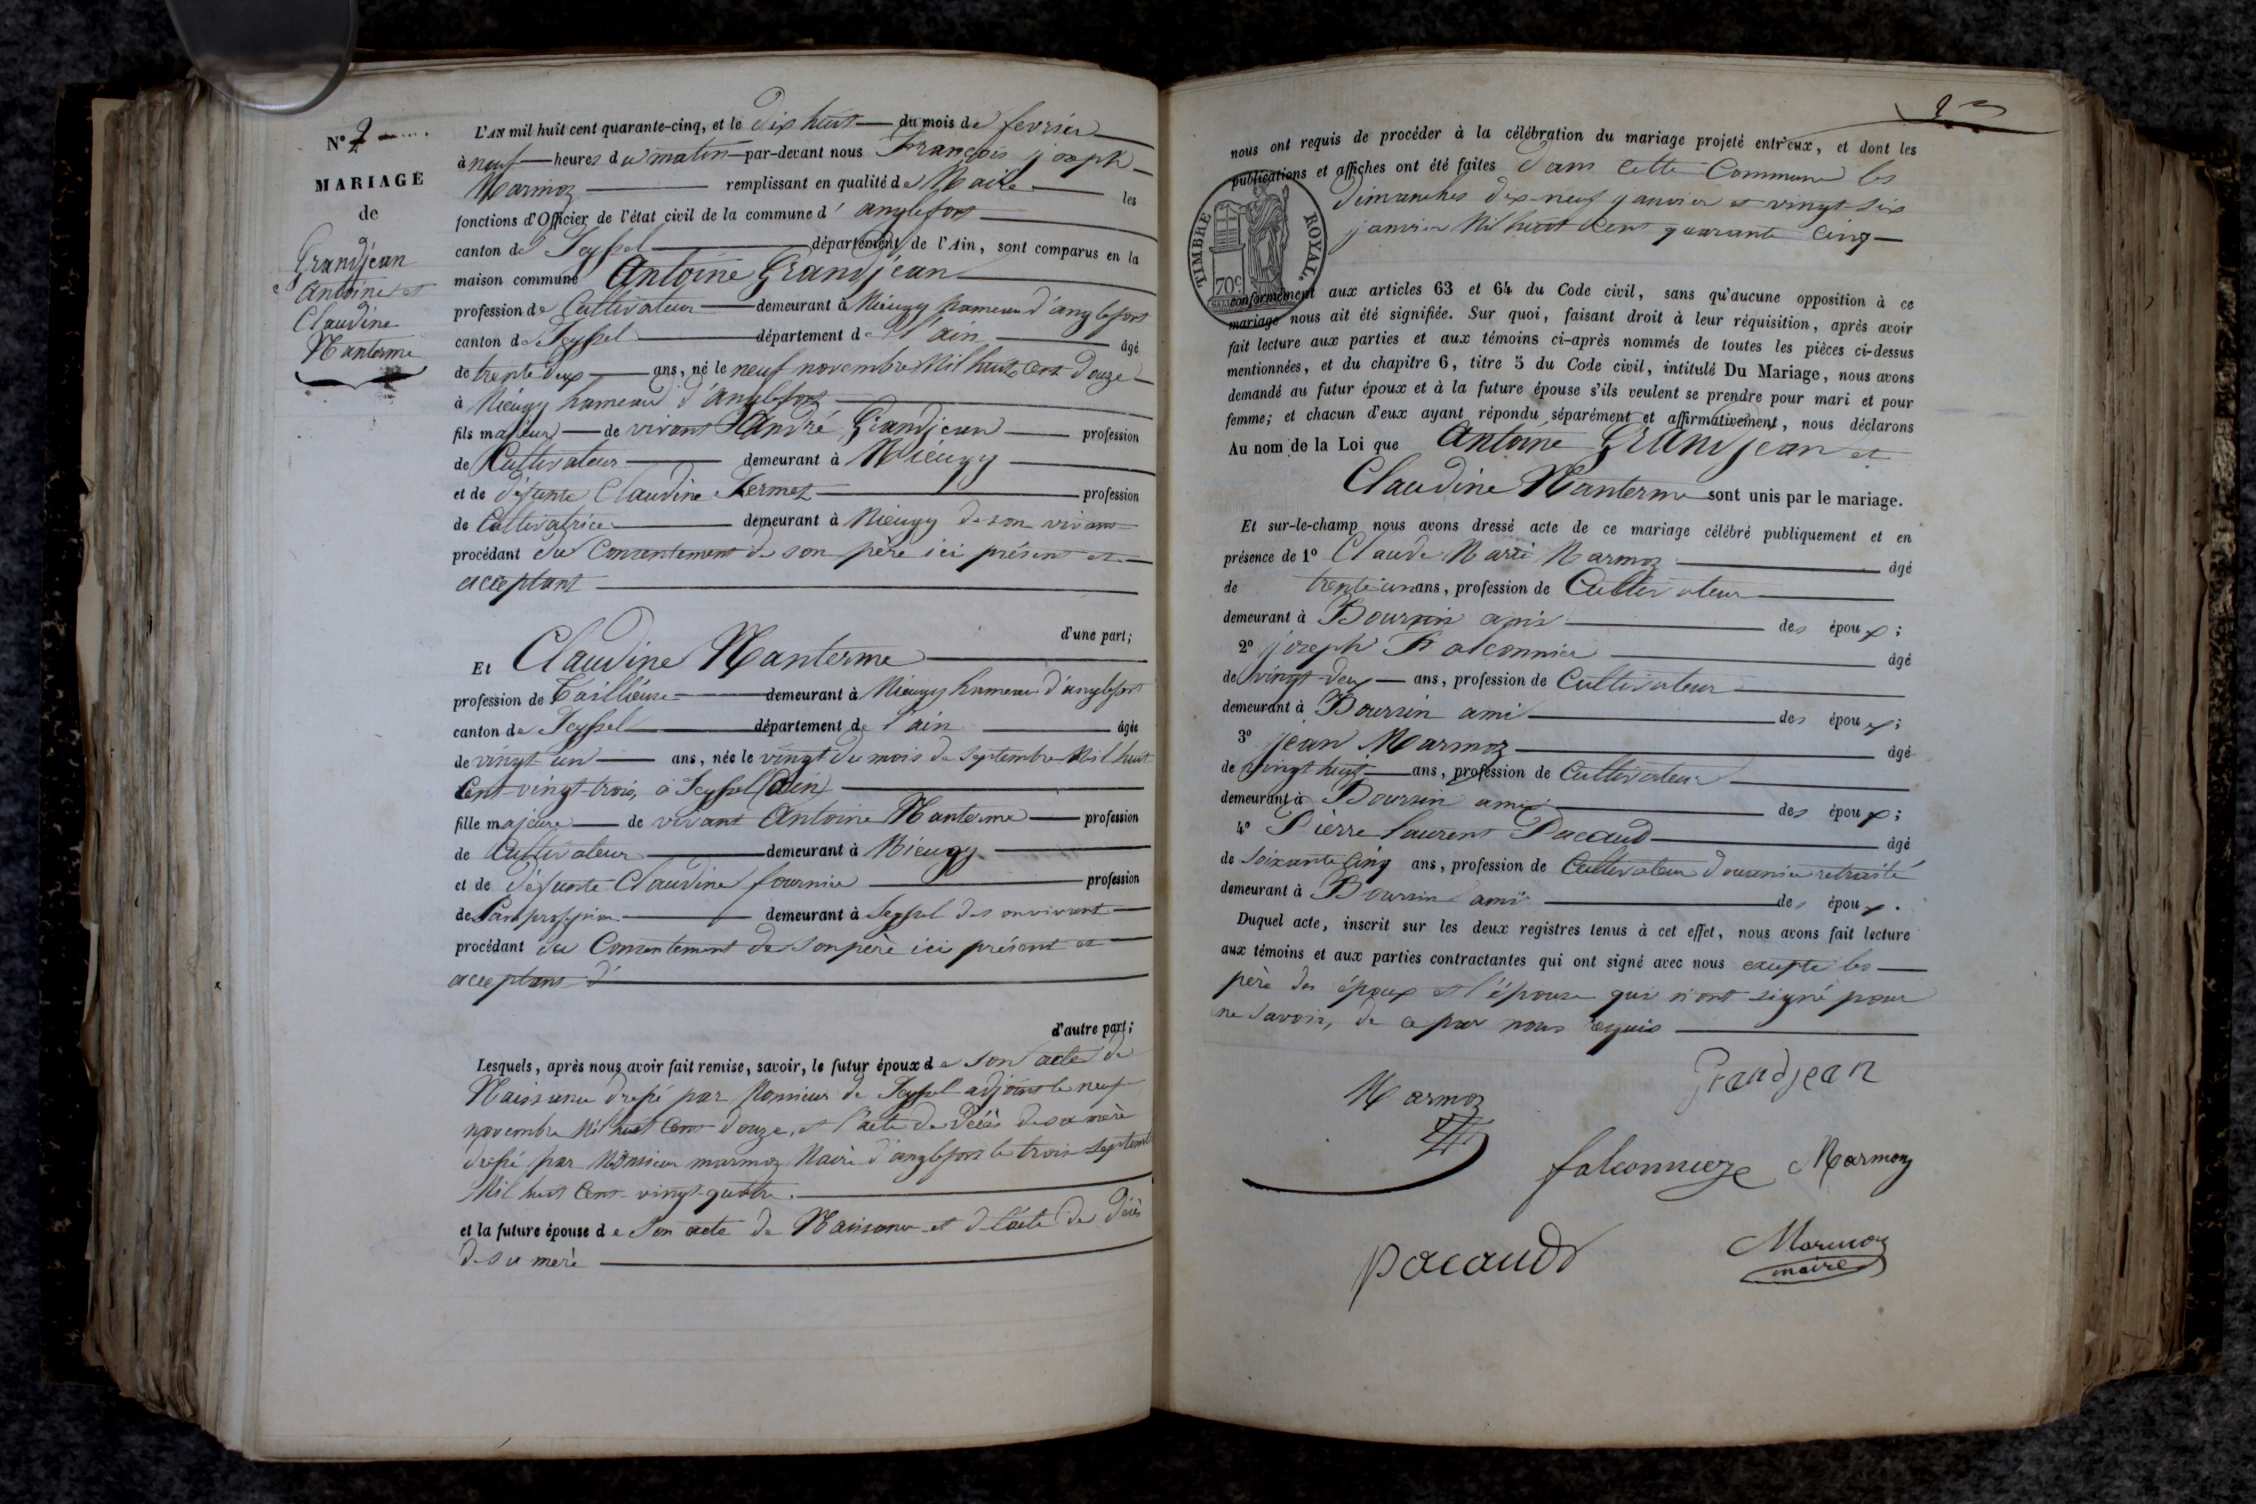 N° 2
MARIAGE
de
Grandjean
Antoine et
Claudine
Nanterme
L'AN mil huit cent quarante-cinq, et le dix huit du mois de fevrier
à neuf heures du matin par-devant nous François joseph
Marmoz remplissant en qualité de Maire les
fonctions d'Officier de l'état civil de la commune d'anglefort
canton de Seyssel département de l'Ain, sont comparus en la
maison commune Antoine Grandjean
profession de Cultivateur demeurant à Mieugy hameau d'anglefort
canton de Seyssel département de l'ain âgé
de trente deux ans, né le neuf novembre Mil huit cent douze
à Mieugy hameau d'Anglefort
fils majeur de vivant André Grandjean profession
de Cultivateur demeurant à Mieugy
et de défunte Claudine Fermet profession
de Cultivatrice demeurant à Mieugy de son vivant
procédant du Consentement de son père ici présent et
acceptant
d'une part;
Et Claudine Nanterme
profession de Tailleuse demeurant à Mieugy hameau d'anglefort
canton de Seyssel département de l'ain âgée
de vingt un ans, née le vingt du mois de Septembre Mil huit
Cent vingt-trois, à Seyssel (ain)
fille majeure de vivant Antoine Nanterme profession
de Cultivateur demeurant à Mieugy
et de défunte Claudine fournier profession
de Sans profession demeurant à Seyssel de son vivant
procédant du Consentement de son père ici présent et
acceptant
d'autre part;
Lesquels, après nous avoir fait remise, savoir, le futur époux de son acte de
Naissance dressé par Monsieur de Seyssel adjoint le neuf
novembre Mil huit Cent douze, et l'acte de Décès de sa mère
dressé par Monsieur marmoz Maire d'anglefort le trois septembre
Mil huit Cent vingt-quatre.
et la future épouse de Son acte de Naissance et de l'acte de décès
de sa mère
2
nous ont requis de procéder à la célébration du mariage projeté entr'eux, et dont les
publications et affiches ont été faites dans cette Commune les
dimanches dix-neuf janvier et vingt-six
janvier Mil huit Cent quarante Cinq
TIMBRE ROYAL.
70c
conformément aux articles 63 et 64 du Code civil, sans qu'aucune opposition à ce
mariage nous ait été signifiée. Sur quoi, faisant droit à leur réquisition, après avoir
fait lecture aux parties et aux témoins ci-après nommés de toutes les pièces ci-dessus
mentionnées, et du chapitre 6, titre 5 du Code civil, intitulé Du Mariage, nous avons
demandé au futur époux et à la future épouse s'ils veulent se prendre pour mari et pour
femme; et chacun d'eux ayant répondu séparément et affirmativement, nous déclarons
Au nom de la Loi que Antoine Grandjean et
Claudine Nanterme sont unis par le mariage.
Et sur-le-champ nous avons dressé acte de ce mariage célébré publiquement et en
présence de 1° Claude Marie Marmoz âgé
de trente un ans, profession de Cultivateur
demeurant à Boursin amis des époux;
2° joseph Falconnier âgé
de vingt-deux ans, profession de Cultivateur
demeurant à Boursin ami des époux;
3° jean Marmoz âgé
de vingt huit ans, profession de Cultivateur
demeurant à Boursin ami des époux;
4° Pierre Laurent Pacaud âgé
de Soixante Cinq ans, profession de Cultivateur douanier retraité
demeurant à Boursin ami des époux.
Duquel acte, inscrit sur les deux registres tenus à cet effet, nous avons fait lecture
aux témoins et aux parties contractantes qui ont signé avec nous excepté les
père des époux et l'épouse qui n'ont signé pour
ne savoir, de ce par nous requis
Grandjean
Marmoz
falconnieze Marmoz
pacaud
Marmoz
maire